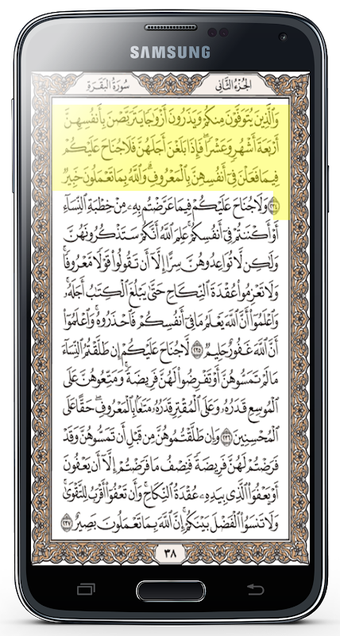 SAMSUNG
الجزء الثاني سورة البقرة
وَٱلَّذِينَ يُتَوَفَّوْنَ مِنكُمْ وَيَذَرُونَ أَزْوَٰجًا يَتَرَبَّصْنَ بِأَنفُسِهِنَّ
أَرْبَعَةَ أَشْهُرٍ وَعَشْرًا ۖ فَإِذَا بَلَغْنَ أَجَلَهُنَّ فَلَا جُنَاحَ عَلَيْكُمْ
فِيمَا فَعَلْنَ فِىٓ أَنفُسِهِنَّ بِٱلْمَعْرُوفِ ۗ وَٱللَّهُ بِمَا تَعْمَلُونَ خَبِيرٌ
٢٣٤ وَلَا جُنَاحَ عَلَيْكُمْ فِيمَا عَرَّضْتُم بِهِۦ مِنْ خِطْبَةِ ٱلنِّسَآءِ
أَوْ أَكْنَنتُمْ فِىٓ أَنفُسِكُمْ ۚ عَلِمَ ٱللَّهُ أَنَّكُمْ سَتَذْكُرُونَهُنَّ
وَلَٰكِن لَّا تُوَاعِدُوهُنَّ سِرًّا إِلَّآ أَن تَقُولُوا۟ قَوْلًا مَّعْرُوفًا ۚ
وَلَا تَعْزِمُوا۟ عُقْدَةَ ٱلنِّكَاحِ حَتَّىٰ يَبْلُغَ ٱلْكِتَٰبُ أَجَلَهُۥ ۚ
وَٱعْلَمُوٓا۟ أَنَّ ٱللَّهَ يَعْلَمُ مَا فِىٓ أَنفُسِكُمْ فَٱحْذَرُوهُ ۚ وَٱعْلَمُوٓا۟
أَنَّ ٱللَّهَ غَفُورٌ حَلِيمٌ ٢٣٥ لَّا جُنَاحَ عَلَيْكُمْ إِن طَلَّقْتُمُ ٱلنِّسَآءَ
مَا لَمْ تَمَسُّوهُنَّ أَوْ تَفْرِضُوا۟ لَهُنَّ فَرِيضَةً ۚ وَمَتِّعُوهُنَّ عَلَى
ٱلْمُوسِعِ قَدَرُهُۥ وَعَلَى ٱلْمُقْتِرِ قَدَرُهُۥ مَتَٰعًۢا بِٱلْمَعْرُوفِ ۖ حَقًّا عَلَى
ٱلْمُحْسِنِينَ ٢٣٦ وَإِن طَلَّقْتُمُوهُنَّ مِن قَبْلِ أَن تَمَسُّوهُنَّ وَقَدْ
فَرَضْتُمْ لَهُنَّ فَرِيضَةً فَنِصْفُ مَا فَرَضْتُمْ إِلَّآ أَن يَعْفُونَ
أَوْ يَعْفُوَا۟ ٱلَّذِى بِيَدِهِۦ عُقْدَةُ ٱلنِّكَاحِ ۚ وَأَن تَعْفُوٓا۟ أَقْرَبُ لِلتَّقْوَىٰ ۚ
وَلَا تَنسَوُا۟ ٱلْفَضْلَ بَيْنَكُمْ ۚ إِنَّ ٱللَّهَ بِمَا تَعْمَلُونَ بَصِيرٌ ٢٣٧
٣٨